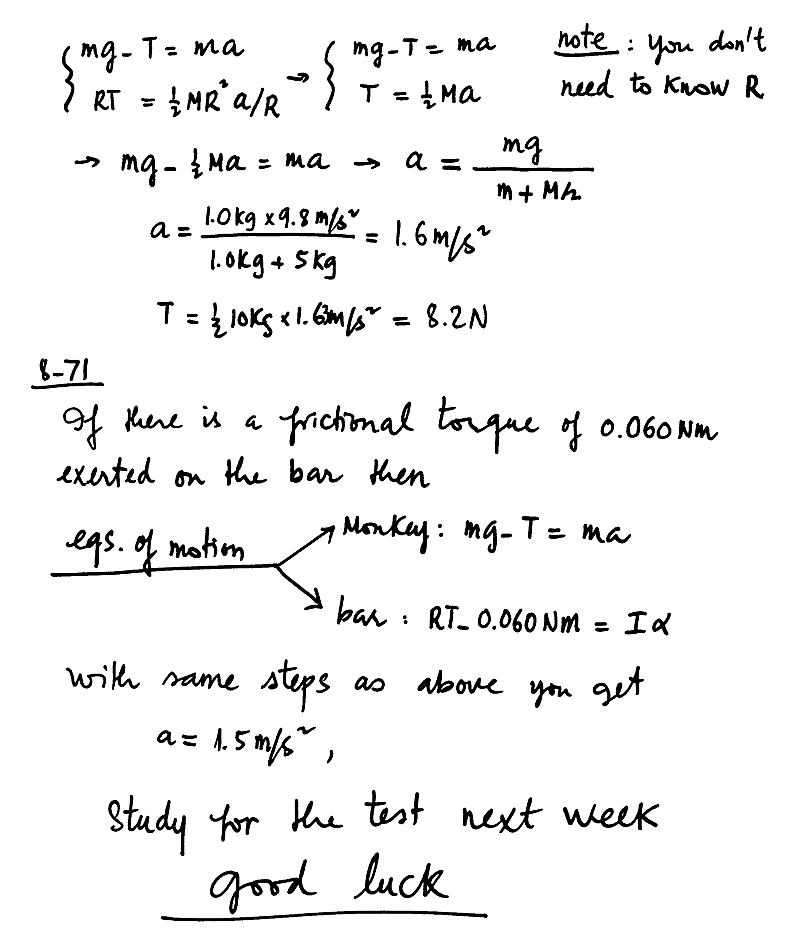 { mg - T = ma → { mg - T = ma note : you don't
RT = ½MR² a/R T = ½Ma need to know R
→ mg - ½Ma = ma → a = mg / (m + M/2)
a = 1.0kg x 9.8 m/s² / 1.0kg + 5kg = 1.6 m/s²
T = ½ 10kg x 1.63m/s² = 8.2N
8-71
If there is a frictional torque of 0.060 Nm
exerted on the bar then
eqs. of motion Monkey: mg - T = ma
bar : RT - 0.060 Nm = Iα
with same steps as above you get
a = 1.5 m/s² ,
Study for the test next week
good luck